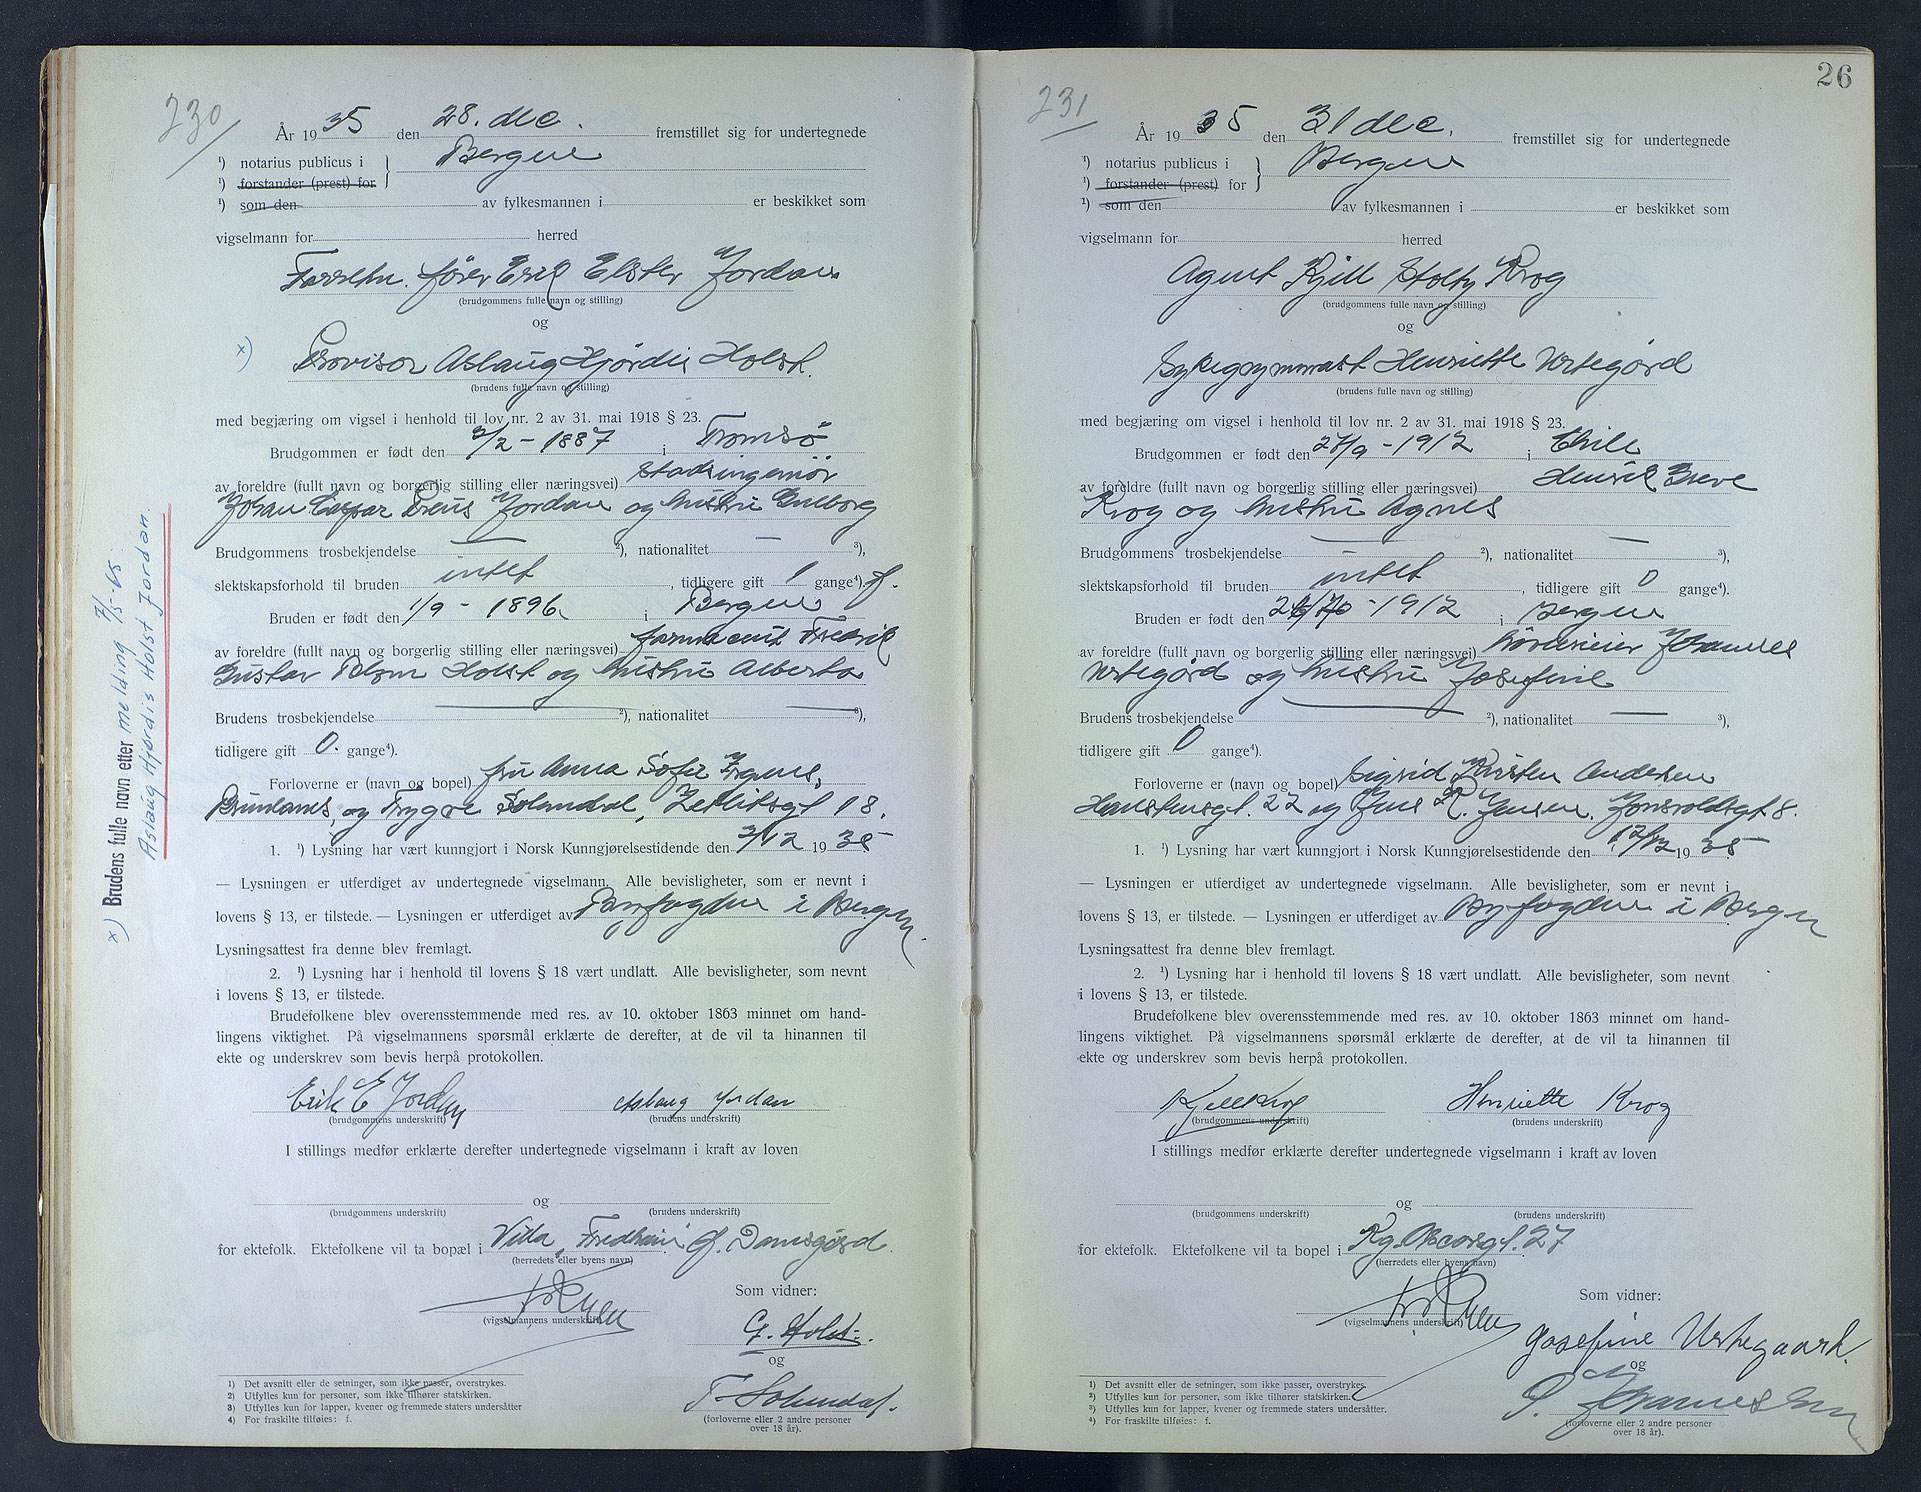 230
År 1935 den 28. dec. fremstillet sig for undertegnede
¹) notarius publicus i Bergen
¹) forstander (prest) for
¹) som den av fylkesmannen i er beskikket som
vigselmann for herred
Forretn. fører Erik Elster Jordan
(brudgommens fulle navn og stilling)
og
x) Provisor Aslaug Hjördis Holst.
(brudens fulle navn og stilling)
med begjæring om vigsel i henhold til lov nr. 2 av 31. mai 1918 § 23.
Brudgommen er født den 3/2 - 1887 i Tromsö
av foreldre (fullt navn og borgerlig stilling eller næringsvei) stadsingeniör
Johan Caspar Preus Jordan og hustru Gulborg
Brudgommens trosbekjendelse — ²), nationalitet — ³),
slektskapsforhold til bruden intet, tidligere gift 1 gange⁴). f.
Bruden er født den 1/9 - 1896 i Bergen
av foreldre (fullt navn og borgerlig stilling eller næringsvei) farmaceut Fredrik
Gustav Blom Holst og hustru Alberta
Brudens trosbekjendelse — ²), nationalitet — ³),
tidligere gift 0. gange⁴).
Forloverne er (navn og bopel) fru Anna Sofie Irgens,
og Trygve Solundal, Zetlitzgt 18.
1. ¹) Lysning har vært kunngjort i Norsk Kunngjørelsestidende den 3/12 1935
— Lysningen er utferdiget av undertegnede vigselmann. Alle bevisligheter, som er nevnt i
lovens § 13, er tilstede. — Lysningen er utferdiget av Byfogden i Bergen.
Lysningsattest fra denne blev fremlagt.
2. ¹) Lysning har i henhold til lovens § 18 vært undlatt. Alle bevisligheter, som nevnt
i lovens § 13, er tilstede.
Brudefolkene blev overensstemmende med res. av 10. oktober 1863 minnet om hand-
lingens viktighet. På vigselmannens spørsmål erklærte de derefter, at de vil ta hinannen til
ekte og underskrev som bevis herpå protokollen.
Erik E Jordan Aslaug Jordan
(brudgommens underskrift) (brudens underskrift)
I stillings medfør erklærte derefter undertegnede vigselmann i kraft av loven
og
(brudgommens underskrift) (brudens underskrift)
for ektefolk. Ektefolkene vil ta bopæl i Villa Fredheim Damsgård.
(herredets eller byens navn)
Som vidner:
(vigselmannens underskrift)
G. Holst.
og
T. Solundal.
(forloverne eller 2 andre personer
over 18 år).
1) Det avsnitt eller de setninger, som ikke passer, overstrykes.
2) Utfylles kun for personer, som ikke tilhører statskirken.
3) Utfylles kun for lapper, kvener og fremmede staters undersåtter
4) For fraskilte tilføies: f.
x) Brudens fulle navn etter melding 7/5-65:
Aslaug Hjørdis Holst Jordan.
26
231
År 1935 den 31 dec. fremstillet sig for undertegnede
¹) notarius publicus i Bergen
¹) forstander (prest) for
¹) som den av fylkesmannen i er beskikket som
vigselmann for herred
Agent Kjell Stoltz Krog
(brudgommens fulle navn og stilling)
og
Sykegymnast Henriette Urtegård
(brudens fulle navn og stilling)
med begjæring om vigsel i henhold til lov nr. 2 av 31. mai 1918 § 23.
Brudgommen er født den 27/9 - 1912 i Chile
av foreldre (fullt navn og borgerlig stilling eller næringsvei) Henrik Greve
Krog og hustru Agnes
Brudgommens trosbekjendelse — ²), nationalitet — ³),
slektskapsforhold til bruden intet, tidligere gift 0 gange⁴).
Bruden er født den -1912 i Bergen
av foreldre (fullt navn og borgerlig stilling eller næringsvei) Johannes
Urtegård og hustru Josefine
Brudens trosbekjendelse — ²), nationalitet — ³),
tidligere gift 0 gange⁴).
Forloverne er (navn og bopel) Sigrid Kirsten Andersen
Hansteensgt. 22 og Jens R. Jensen. Jonsvoldsgt 8.
1. ¹) Lysning har vært kunngjort i Norsk Kunngjørelsestidende den 12/12 1935
— Lysningen er utferdiget av undertegnede vigselmann. Alle bevisligheter, som er nevnt i
lovens § 13, er tilstede. — Lysningen er utferdiget av Byfogden i Bergen
Lysningsattest fra denne blev fremlagt.
2. ¹) Lysning har i henhold til lovens § 18 vært undlatt. Alle bevisligheter, som nevnt
i lovens § 13, er tilstede.
Brudefolkene blev overensstemmende med res. av 10. oktober 1863 minnet om hand-
lingens viktighet. På vigselmannens spørsmål erklærte de derefter, at de vil ta hinannen til
ekte og underskrev som bevis herpå protokollen.
Kjell Krog Henriette Krog
(brudgommens underskrift) (brudens underskrift)
I stillings medfør erklærte derefter undertegnede vigselmann i kraft av loven
og
(brudgommens underskrift) (brudens underskrift)
for ektefolk. Ektefolkene vil ta bopel i Kg. Oscarsgt. 27
(herredets eller byens navn)
Som vidner:
(vigselmannens underskrift)
Josefine Urtegaard.
og
(forloverne eller 2 andre personer
over 18 år).
1) Det avsnitt eller de setninger, som ikke passer, overstrykes.
2) Utfylles kun for personer, som ikke tilhører statskirken.
3) Utfylles kun for lapper, kvener og fremmede staters undersåtter.
4) For fraskilte tilføies: f.